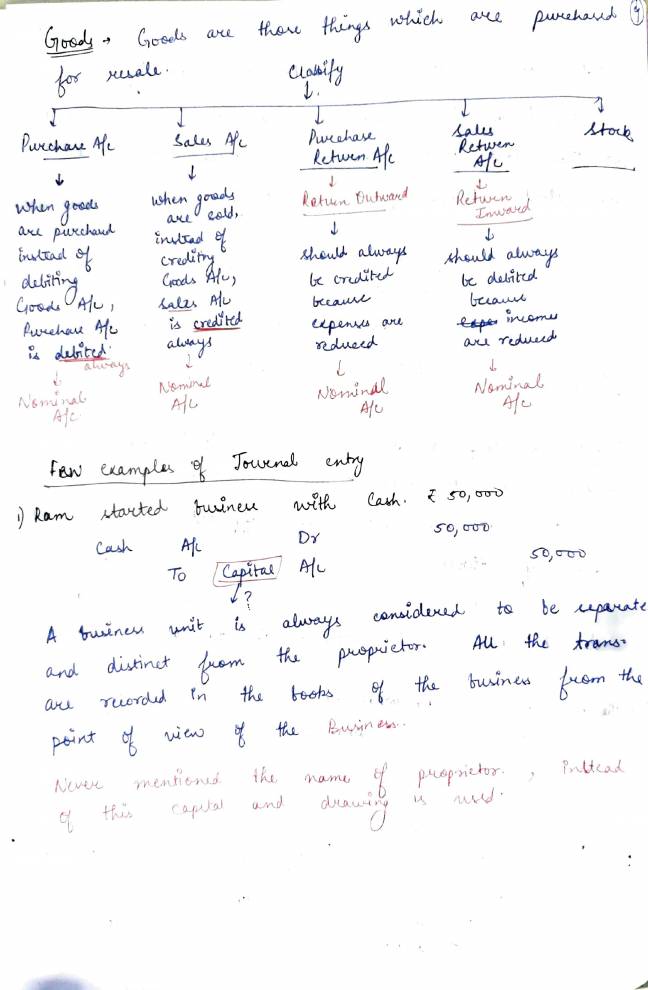 Goods → Goods are those things which are purchased
for resale.
Classify
Purchase A/c
↓
when goods
are purchased
instead of
debiting
Goods A/c,
Purchase A/c
is debited
always
↓
Nominal
A/c
Sales A/c
↓
when goods
are sold,
instead of
crediting
Goods A/c,
Sales A/c
is credited
always
↓
Nominal
A/c
Purchase
Return A/c
↓
Return Outward
↓
should always
be credited
because
expenses are
reduced
↓
Nominal
A/c
Sales
Return
A/c
↓
Return
Inward
↓
should always
be debited
because
incomes
are reduced
↓
Nominal
A/c
Stock
Few examples of Journal entry
1) Ram started business with Cash. ₹ 50,000
Cash A/c Dr 50,000
To Capital A/c 50,000
?
A business unit is always considered to be separate
and distinct from the proprietor. All the trans.
are recorded in the books of the business from the
point of view of the Business.
Never mentioned the name of proprietor, instead
of this capital and drawing is used.